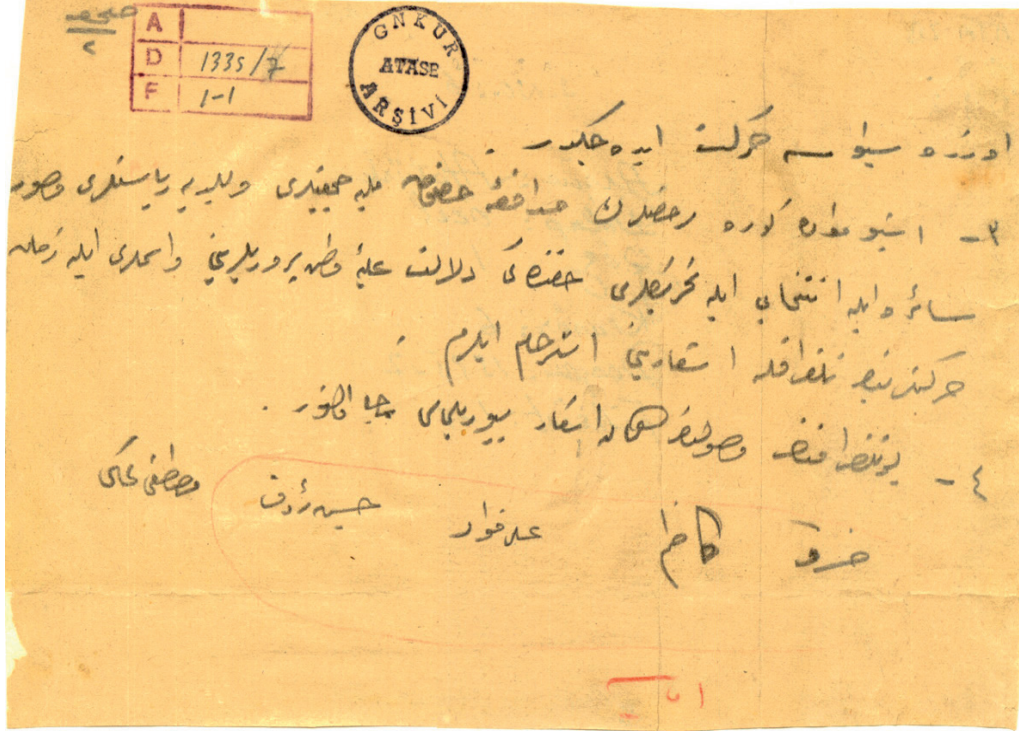 صحیفه
٢
A
D 1335/7
F 1-1
GNKUR
ATASE
ARŞİVİ
اوزره سیواسه حركت ایده جكدر .
٣- اشبو مواده كوره مدافعهٔ حقوق ملیه جمعیتلری وبلدیه ریاستلری وصور
سائره ایله انتخابی ایله تحریكلری حقنده كی دلالت علیهٔ وطن پرورانه لرینی واسملری ایله زمان
حركتلرینك تلغرافله اشعارینی استرحام ایلرم .
٤- بو تلغرافك وصولنك همان اشعار بیورلماسی رجا اولنور .
مصطفی كمال
حسین رؤف
علی فؤاد
كاظم
خسرو